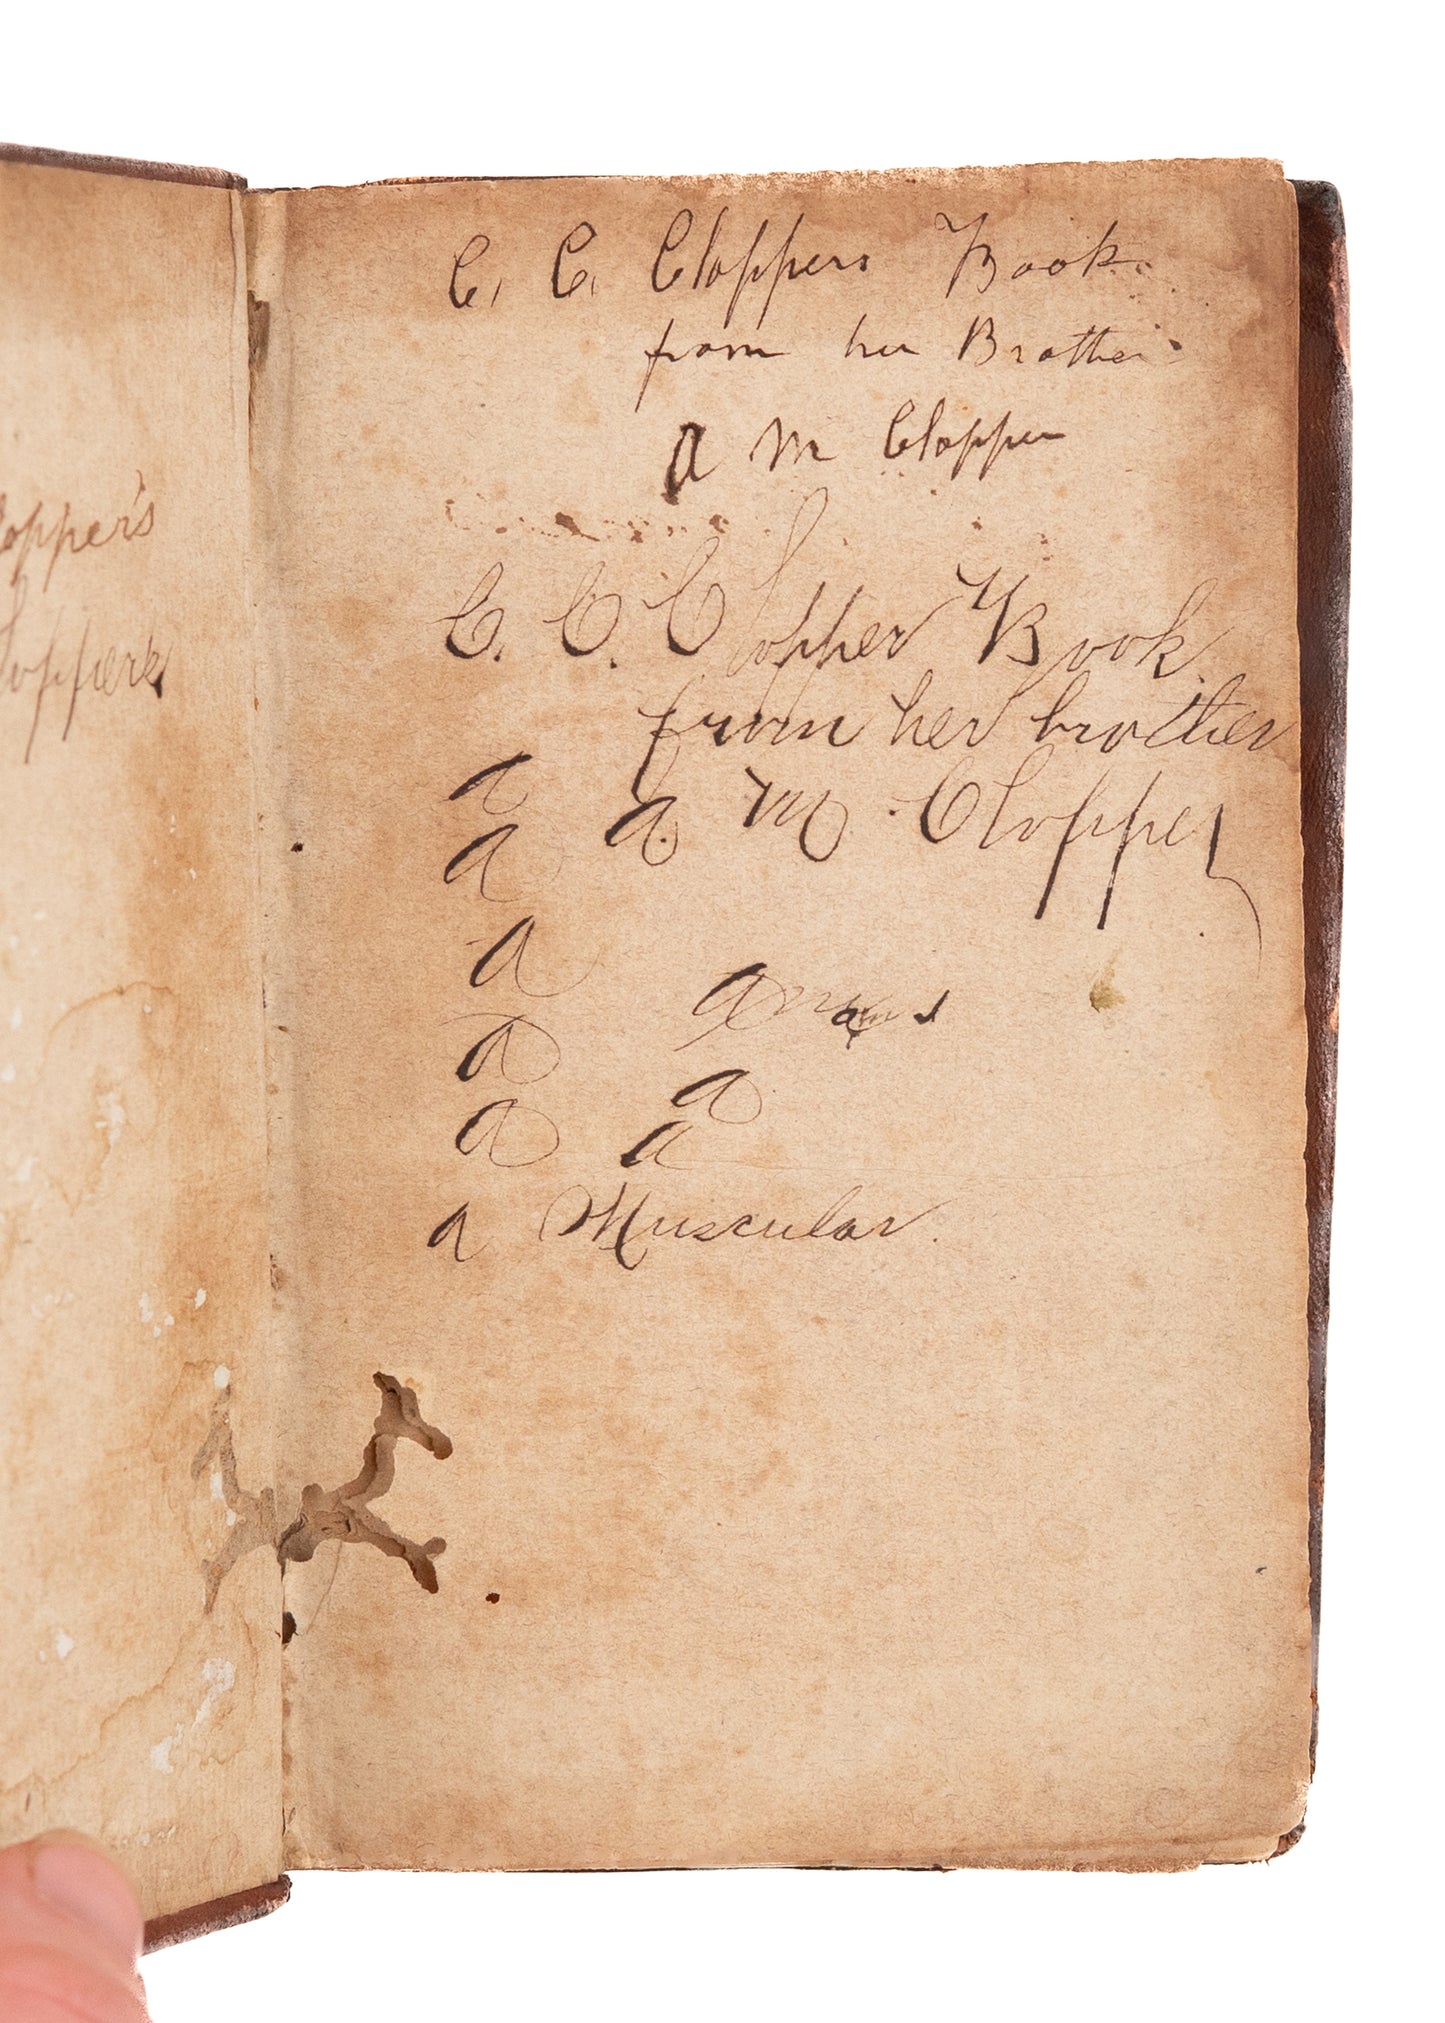 C. C. Cloppers Book.
from her Brother
A M Clopper
C. C. Clopper Book.
from her brother
a
a. M. Clopper
a
a
a
a
a
a
a Muscular.